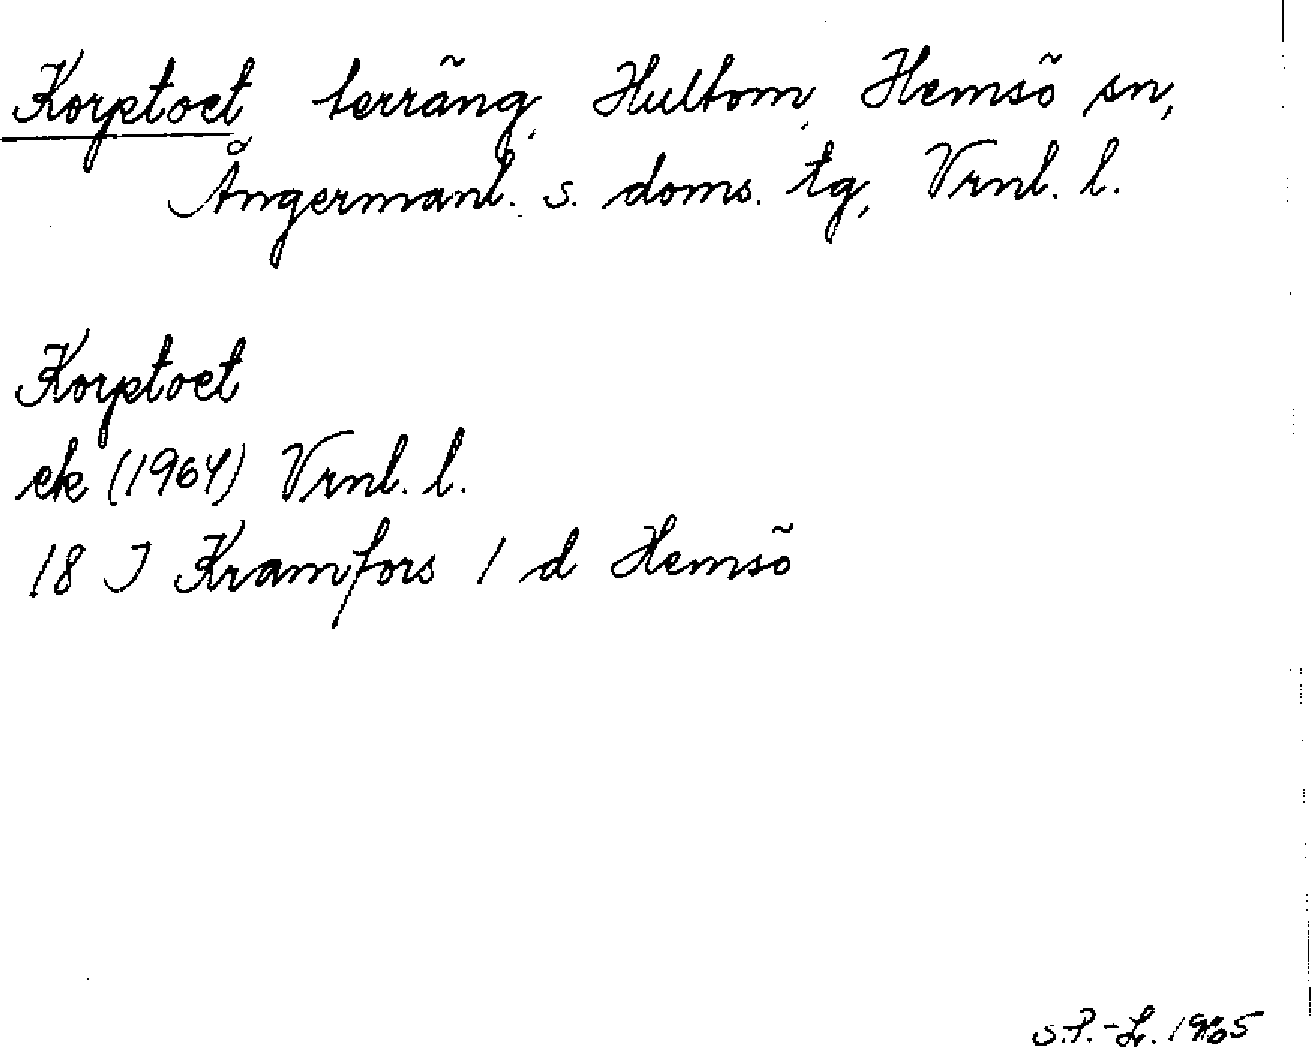 Korptoet terräng, Hultom, Hemsö sn,
Ångermanl. s. doms. tg, Vrnl. l.
Korptoet
ek (1964) Vrnl. l.
18 J Kramfors 1 d Hemsö
S.P.-L. 1965